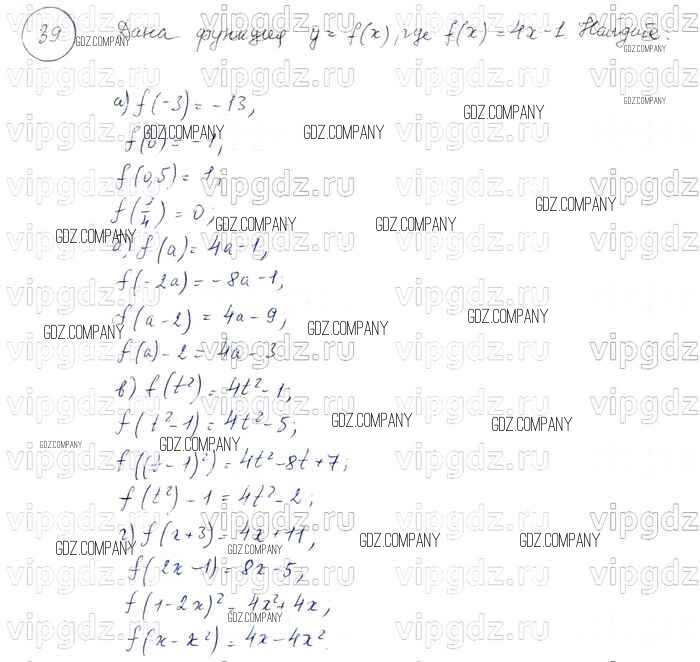 39 Дана функция y = f(x), где f(x) = 4x-1 Найдите:
а) f(-3) = -13,
f(0) = -1,
f(0,5) = 1,
f(3/4) = 0,
б) f(a) = 4a-1,
f(-2a) = -8a-1;
f(a-2) = 4a-9,
f(a)-2 = 4a-3
в) f(t²) = 4t²-1;
f(t²-1) = 4t²-5;
f((t-1)²) = 4t²-8t+7;
f(t²)-1 = 4t²-2;
г) f(x+3) = 4x+11,
f(2x-1) = 8x-5,
f(1-2x)² = 4x²+4x;
f(x-x²) = 4x-4x²
vipgdz.ru
GDZ.COMPANY